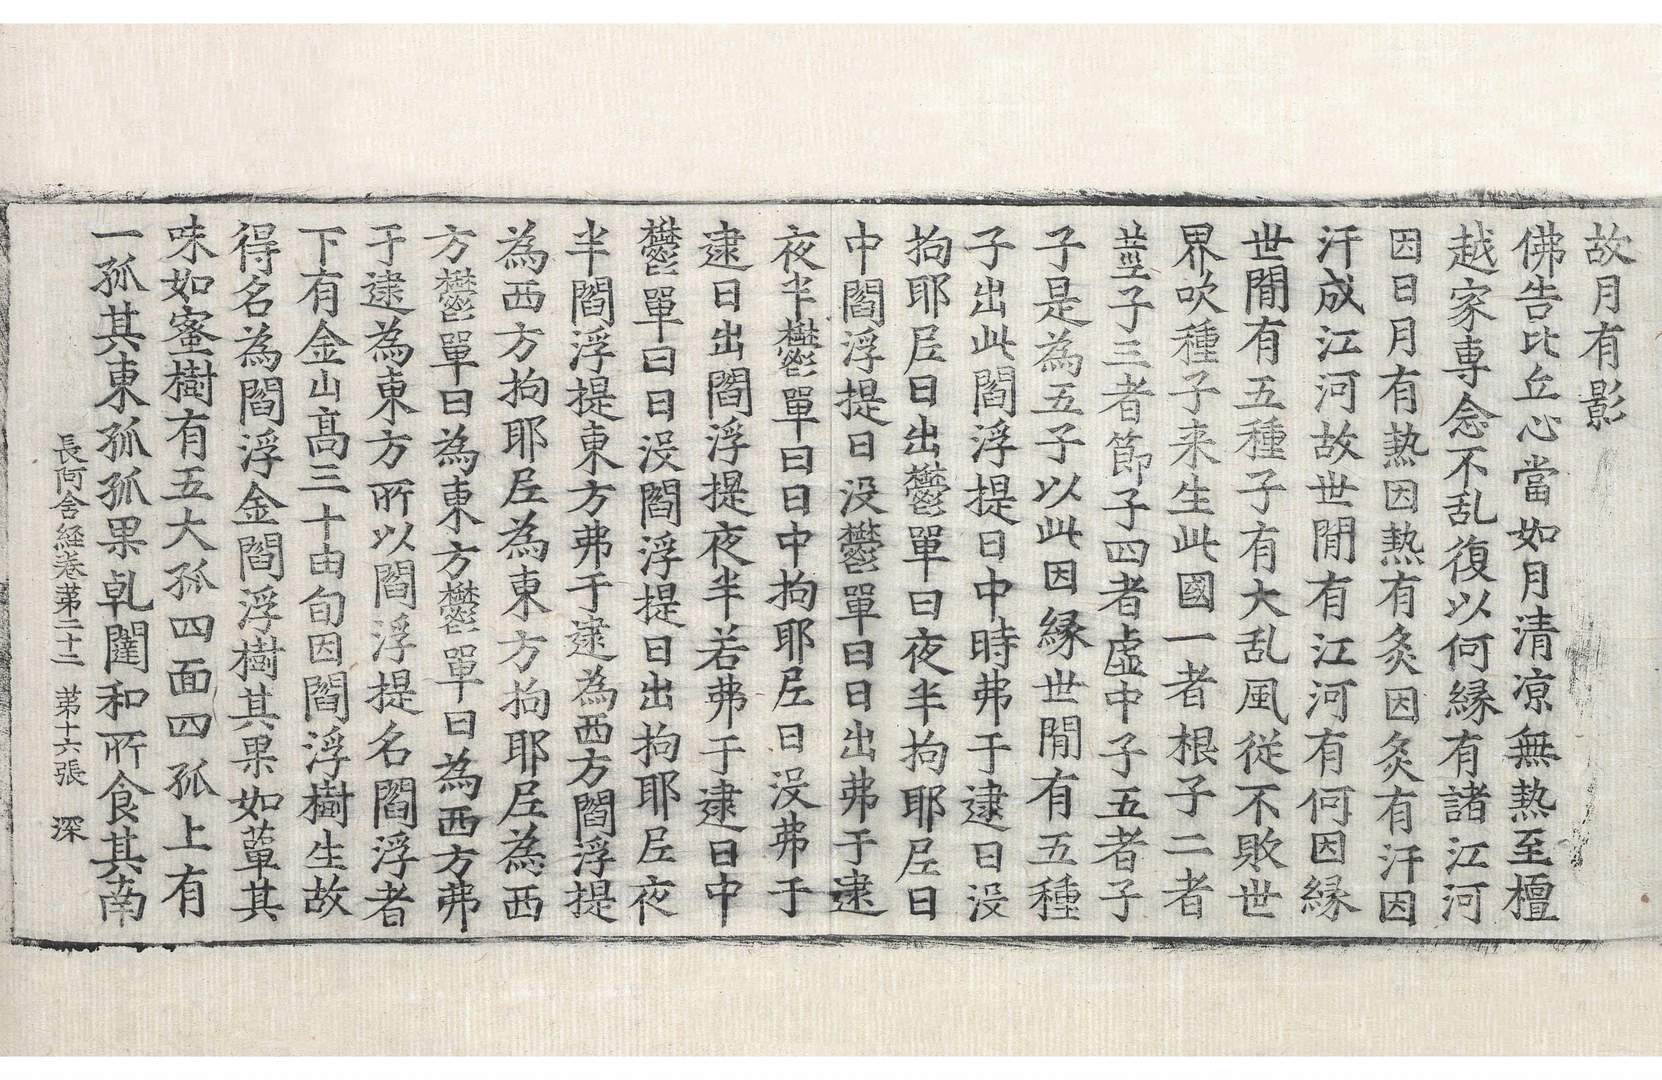 故月有影
佛告比丘心當如月清凉無熱至檀
越家専念不乱復以何縁有諸江河
因日月有熱因熱有炙因炙有汗因
汗成江河故世閒有江河有何因縁
世閒有五種子有大乱風従不敗世
界吹種子来生此國一者根子二者
莖子三者節子四者虛中子五者子
子是為五子以此因縁世閒有五種
子出此閻浮提日中時弗于逮日没
拘耶尼日出鬱單曰夜半拘耶尼日
中閻浮提日没鬱單曰日出弗于逮
夜半鬱單曰日中拘耶尼日没弗于
逮日出閻浮提夜半若弗于逮日中
鬱單曰日没閻浮提日出拘耶尼夜
半閻浮提東方弗于逮為西方閻浮提
為西方拘耶尼為東方拘耶尼為西
方鬱單曰為東方鬱單曰為西方弗
于逮為東方所以閻浮提名閻浮者
下有金山髙三十由旬因閻浮樹生故
得名為閻浮金閻浮樹其果如蕈其
味如蜜樹有五大孤四面四孤上有
一孤其東孤孤果乹闥和所食其南
長阿含経卷第二十二 第十六張 深